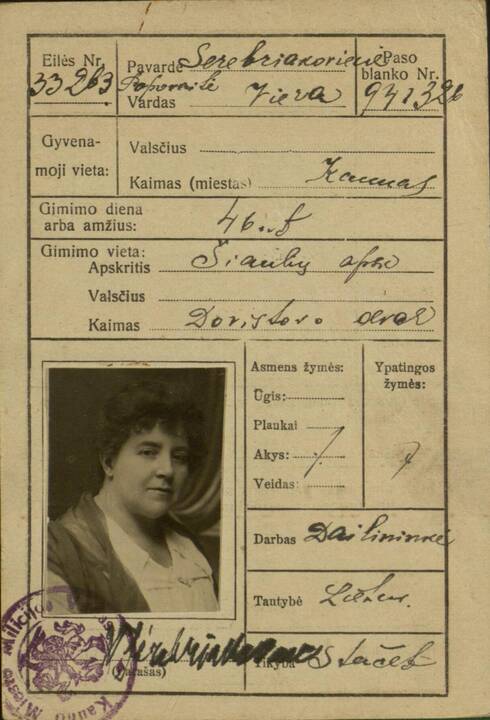 Eilės Nr. 33263
Pavardė Serebriakovienė
Vardas Viera
Paso blanko Nr. 941326
Gyvenamoji vieta:
Valsčius
Kaimas (miestas) Kaunas
Gimimo diena
arba amžius: 46
Gimimo vieta:
Apskritis Šiaulių apsk
Valsčius
Kaimas dvar
Asmens žymės:
Ūgis:
Plaukai
Akys:
Veidas:
Ypatingos
žymės:
Darbas Dailininkė
Tautybė Lietuv.
(parašas)
Tikyba Stačat